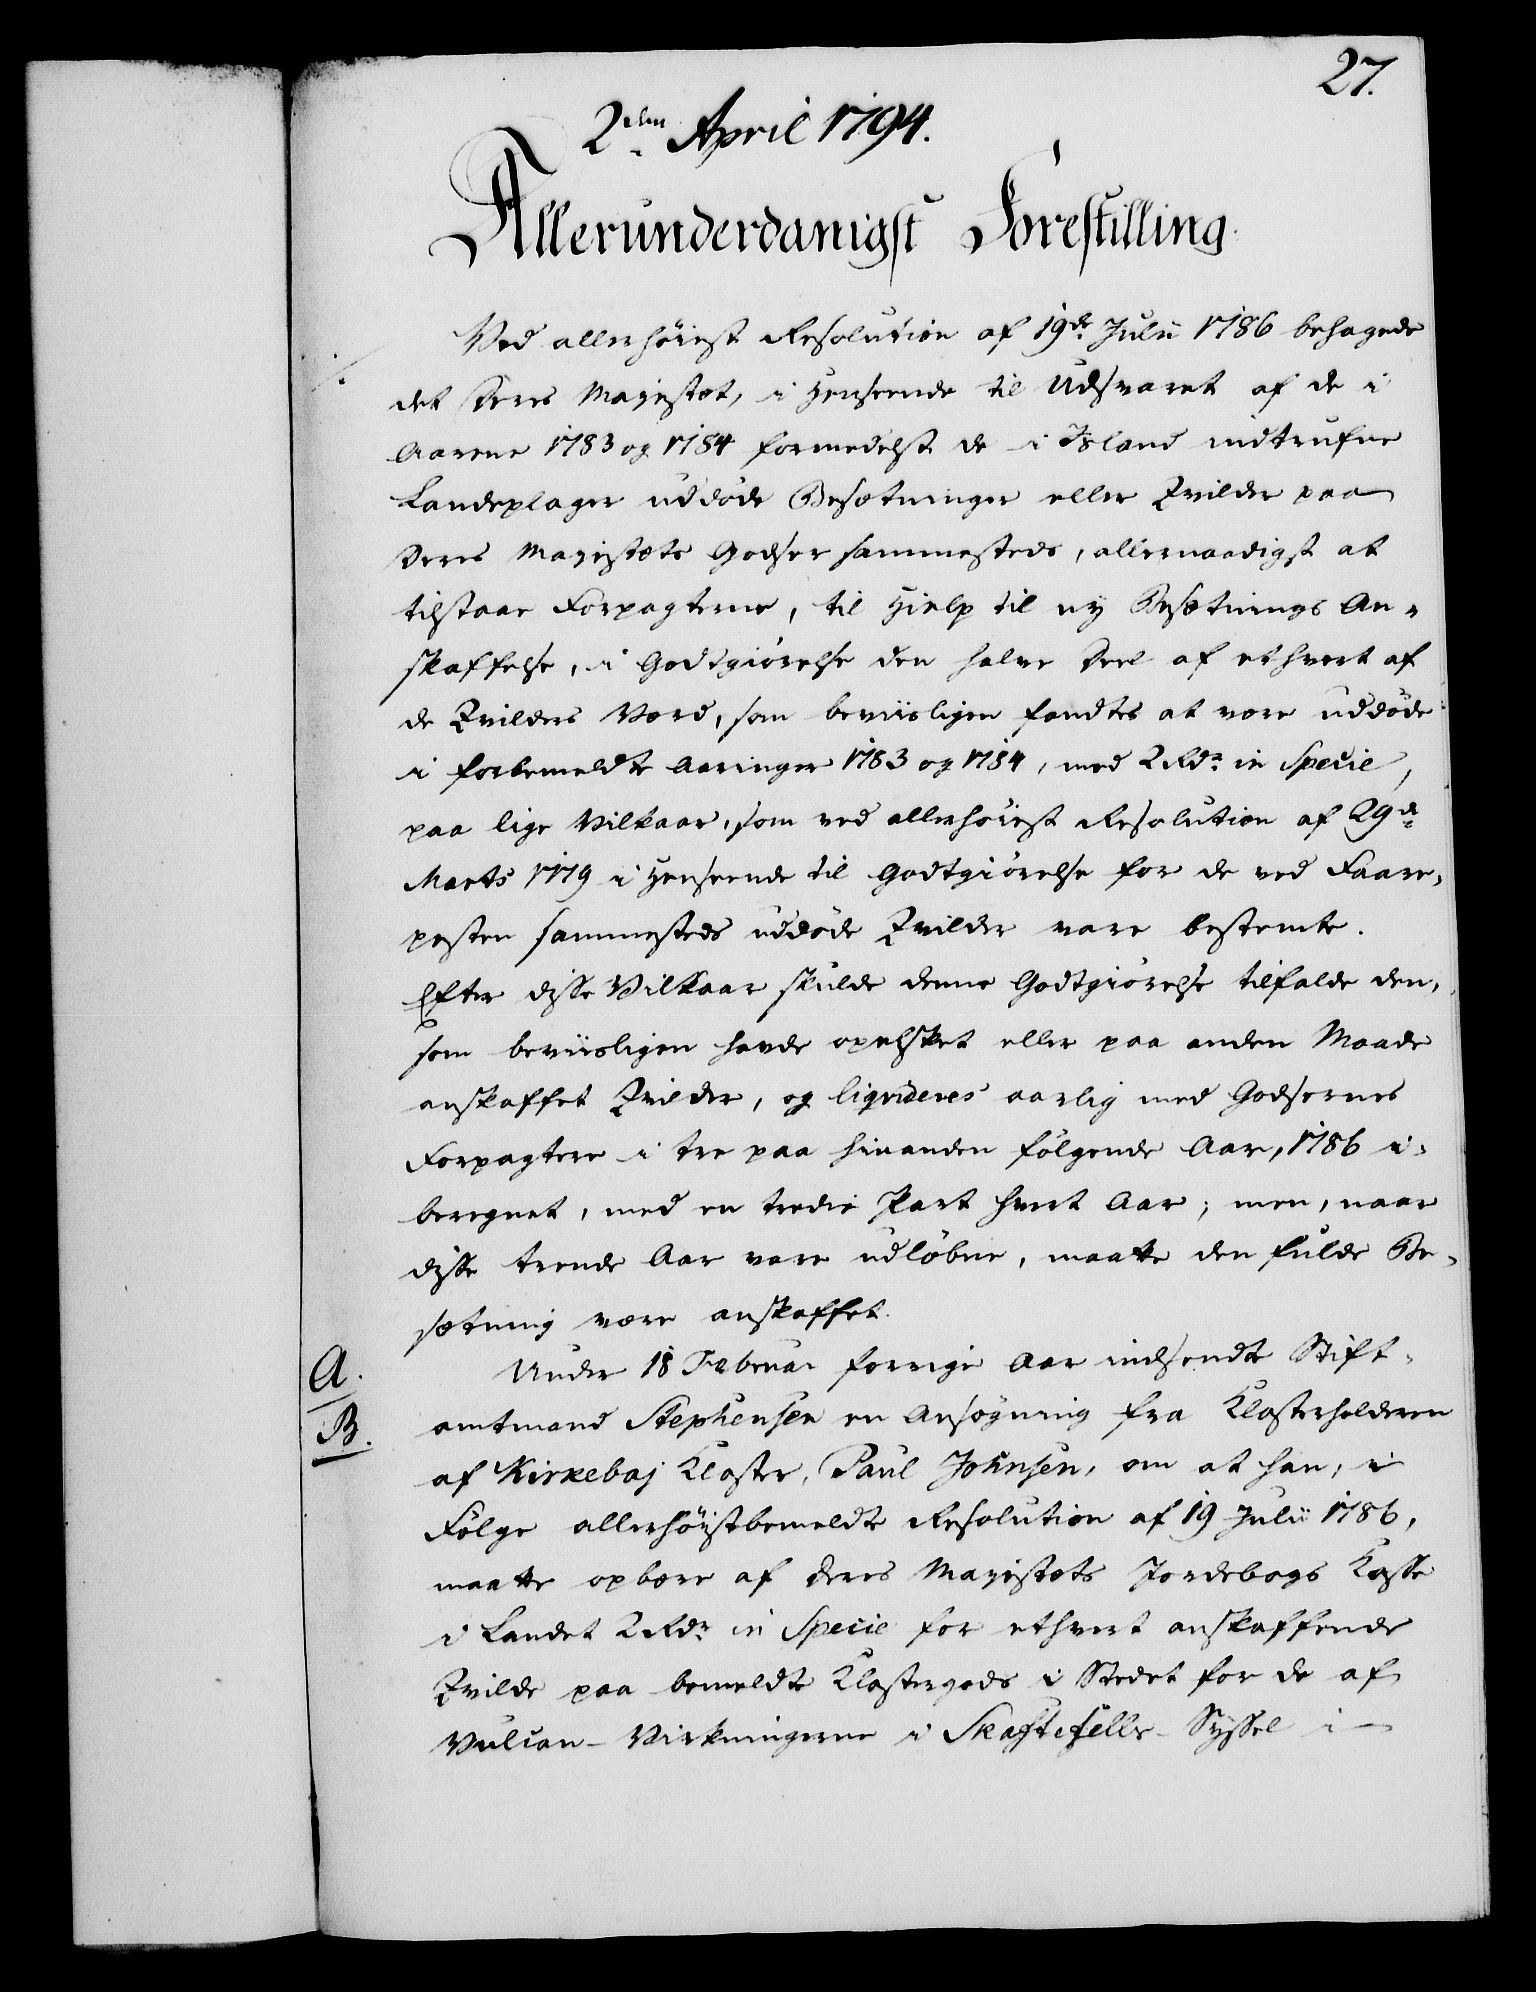 27.
2den April 1794.
Allerunderdanigst Forestilling.
Ved allerhöiest Resolution af 19de Julii 1786 behagede
det Deres Majestæt, i Henseende til Udsvaret af de i
Aarene 1783 og 1784 formedelst de i Island indtrufne
Landeplager uddöde Besætninger eller Qvilder paa
Deres Majestæts Godser sammesteds, allernaadigst at
tilstaae Forpagterne, til Hielp til ny Besætnings An-
skaffelse, i Godtgiörelse den halve Deel af ethvert af
de Qvilders Værd, som beviisligen fandtes at være uddöde
i forbemeldte Aaringer 1783 og 1784, med 2 Rdr. in Specie,
paa lige Vilkaar, som ved allerhöiest Resolution af 29de
Marts 1779 i Henseende til Godtgiörelse for de ved Faare-
pesten sammesteds uddöde Qvilder vare bestemte.
Efter disse Vilkaar skulde denne Godtgiörelse tilfalde den,
som beviisligen havde opelsket eller paa anden Maade
anskaffet Qvilder, og liqvideres aarlig med Godsernes
Forpagtere i tre paa hinanden fölgende Aar, 1786 i-
beregnet, med en tredie Part hvert Aar; men, naar
disse trende Aar vare udlöbne, maatte den fulde Be-
sætning være anskaffet.
A.
Under 18 Februar forrige Aar indsendte Stift-
B.
amtmand Stephensen en Ansögning fra Klosterholderen
af Kirkebaj Kloster, Paul Johnsen, om at han, i
Fölge allerhöistbemeldte Resolution af 19 Julii 1786,
maatte opbære af Deres Majestæts Jordebogs Kasse
i Landet 2 Rdr. in Specie for ethvert anskaffende
Qvilde paa bemeldte Klostergods i Stedet for de af
Vulcan-Virkningerne i Skaftefells-Syssel i